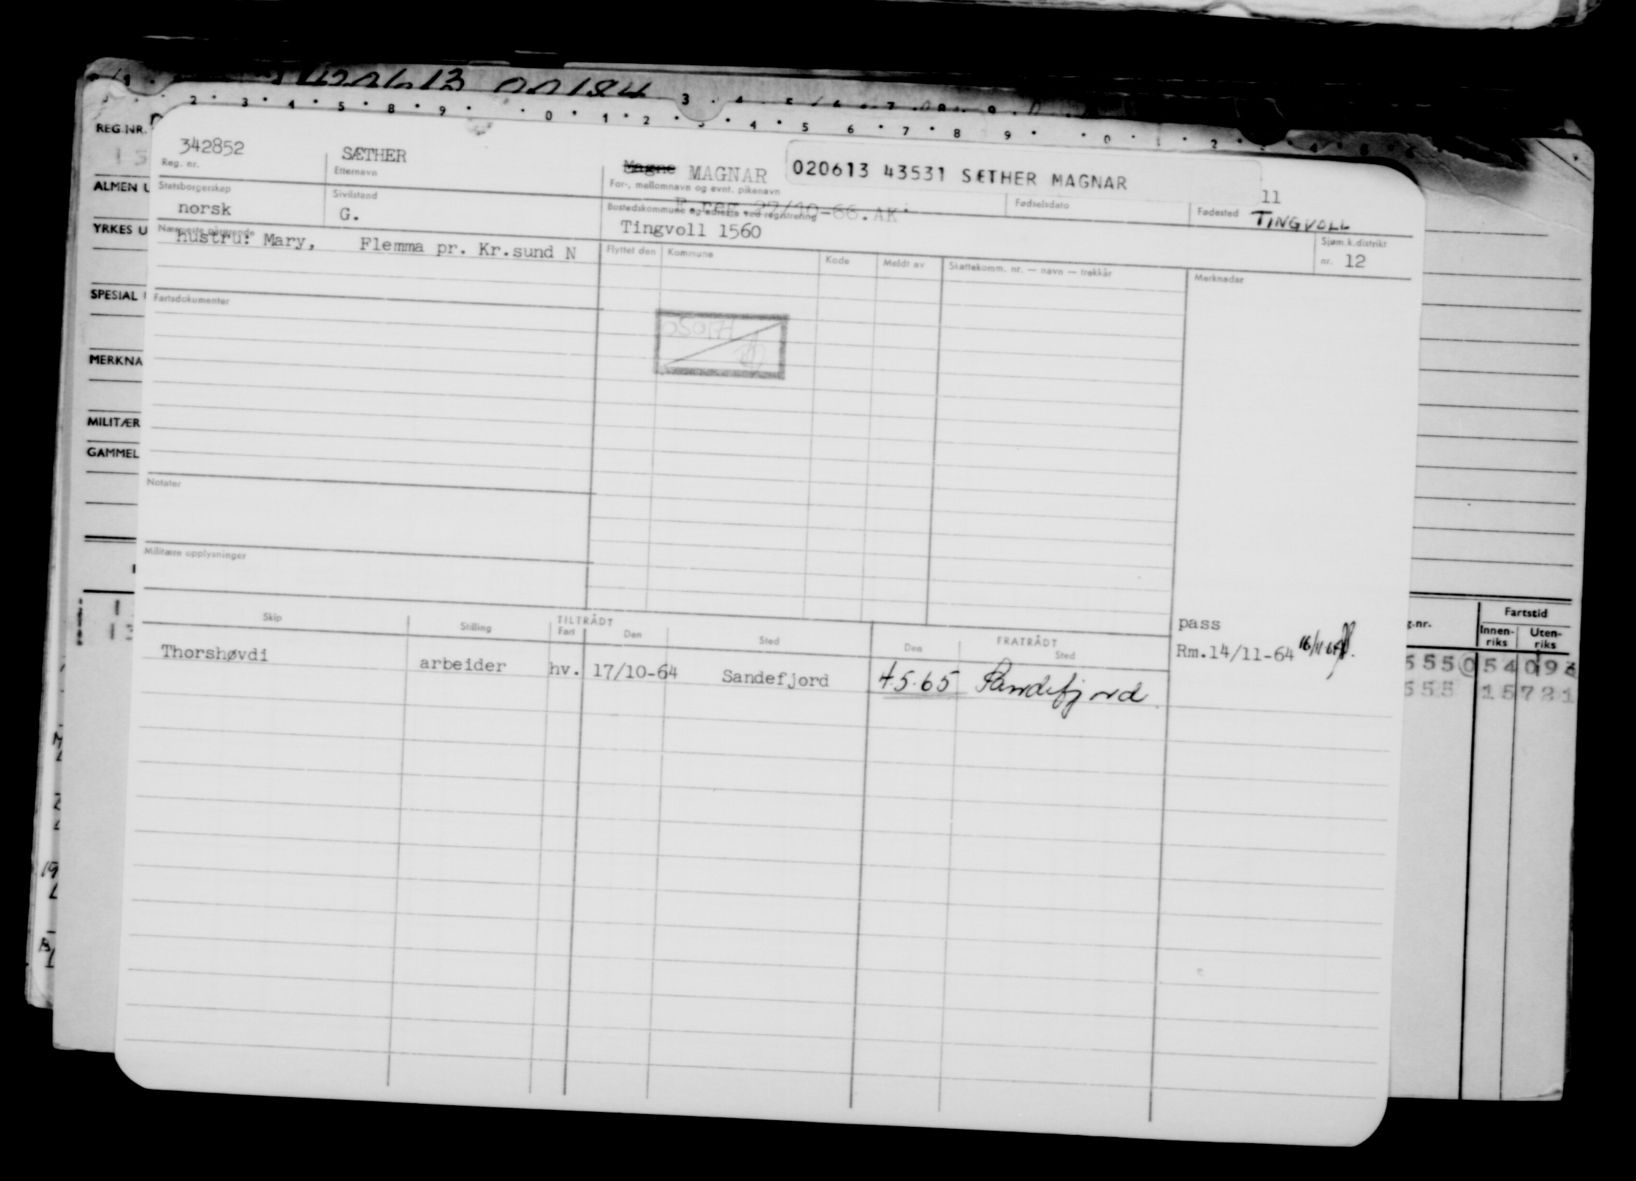 420613 00184
2 · 3 · 4 · 5 · 8 · 9 · · 0 · 1 · 2 · 3 · 4 · 5 6 · 7 · 8 9 · · 0 · 1 · 2
REG.NR.
342852
SÆTHER
Magne MAGNAR
020613 43531 SÆTHER MAGNAR
11
Reg. nr.
Etternavn
For-, mellomnavn og evnt. pikenavn
Fødselsdato
Fødested TINGVOLL
ALMEN U
Statsborgerskap
norsk
Sivilstand
G.
P.reg 27/10-66.AK
Bostedskommune og adresse ved registrering
Tingvoll 1560
Sjøm.k.distrikt
nr. 12
YRKES U
Nærmeste pårørende
hustru: Mary, Flemma pr. Kr.sund N
Flyttet den
Kommune
Kode
Meldt av
Skattekomm. nr. — navn — trekkår
Merknader
SPESIAL
Fartsdokumenter
MERKNA
MILITÆR
GAMMEL
Notater
Militære opplysninger
Skip
Stilling
TILTRÅDT
Fart
Den
Sted
FRATRÅDT
Den
Sted
pass
Rm.14/11-64
Thorshøvdi
arbeider
hv.
17/10-64
Sandefjord
4.5.65
Sandefjord
Fartstid
g.nr.
Innen-riks
Uten-riks
555 0 54 093
555 15 721